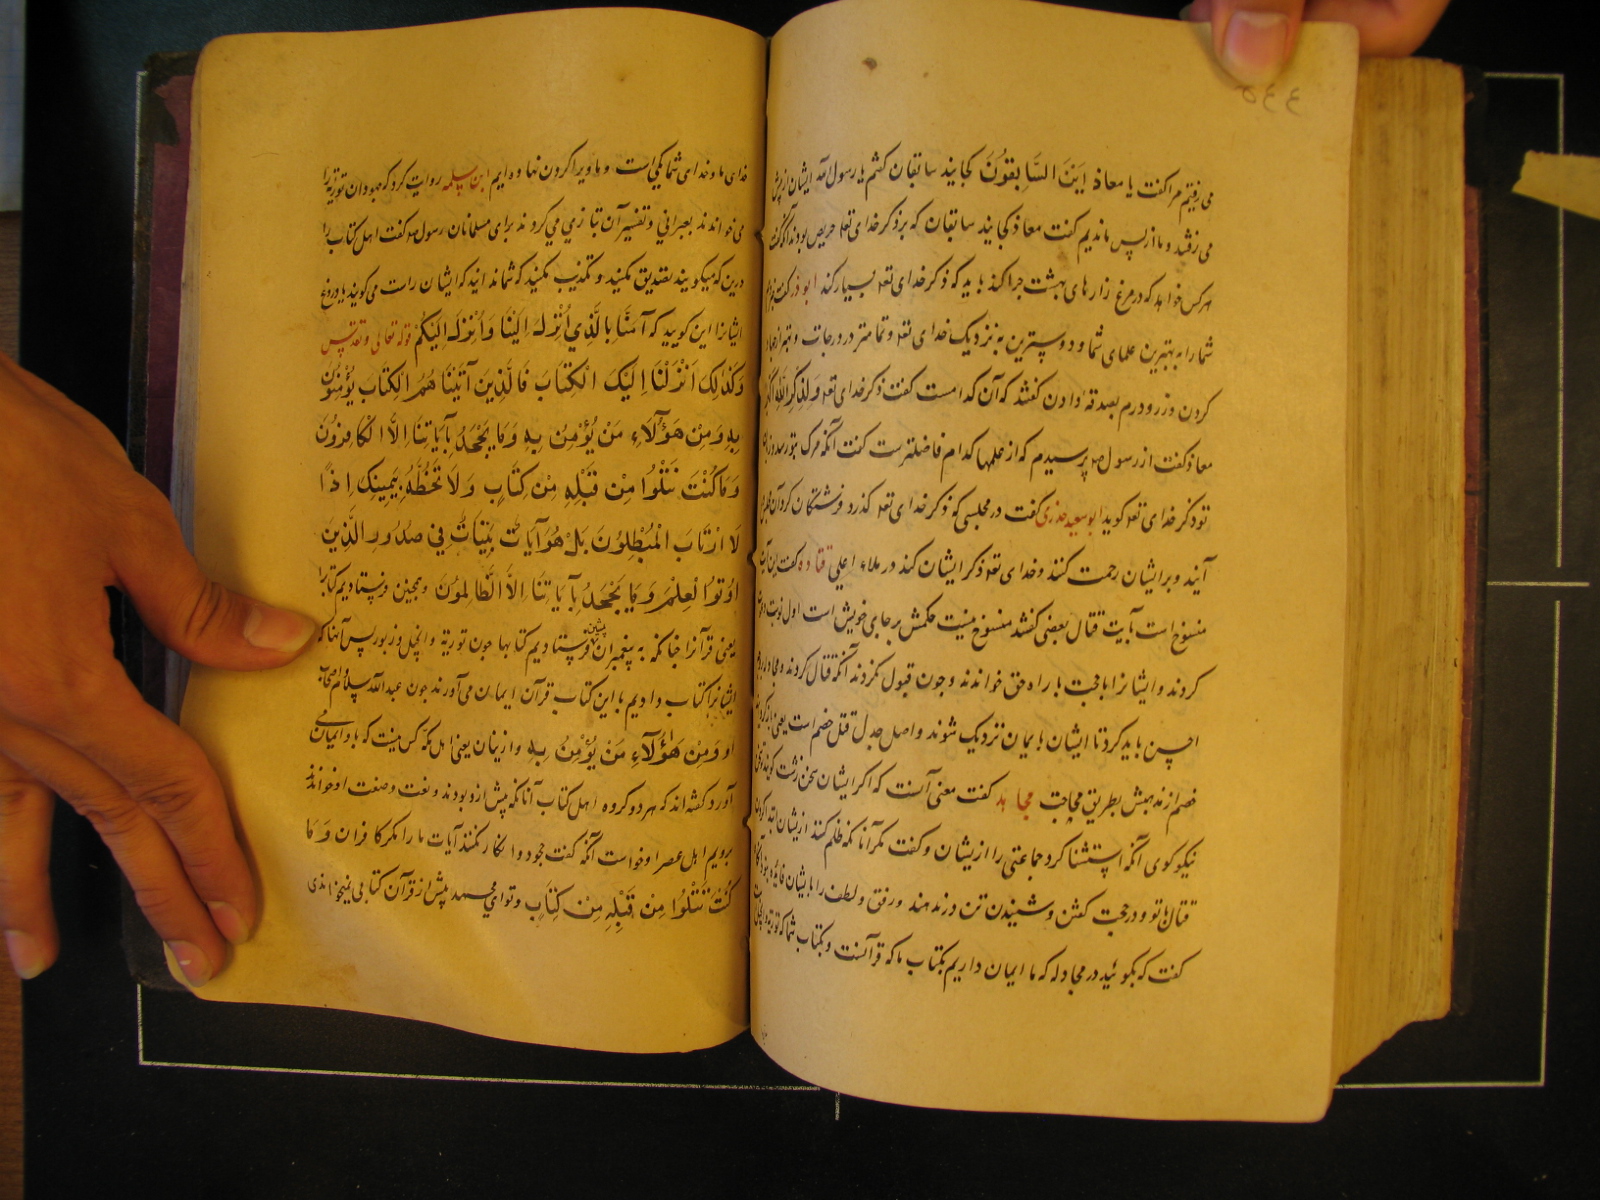 ۵۴۴
می رفتیم مرا گفت یا معاذ اَیْنَ السَّابِقُونَ کجایند سابقان گفتم یا رسول الله ایشان از پیش
می رفتند و ما از پس ماندیم گفت معاذ کجایند سابقان که بر ذکر خدای تعه حریص بودند آنکه گفت
هر کس خواهد که در مرغ زارهای بهشت چرا کند باید که ذکر خدای تعه بسیار کند ابو ذر گفت
شما را به بهترین عملهای شما و دوسترین به نزدیک خدای تعه و تمامتر در درجات و بهتر از
کردن و زر و درم بصدقه دادن گفتند که آن کدامست گفت ذکر خدای تعه وَلَذِکْرُ اللهِ اَکْبَرُ
معاذ گفت از رسول صه پرسیدم که از عملها کدام فاضلترست گفت آنکه مرگ بتو رسد و زبان
تو ذکر خدای تعه گوید ابو سعید خدری گفت در مجلسی که ذکر خدای تعه گذرد فرشتگان کرد آن
آیند و بر ایشان رحمت کنند و خدای تعه ذکر ایشان کند در ملاء اعلی قتاده گفت این آیت
منسوخ است بآیت قتال بعضی گفتند منسوخ نیست حکمش بر جای خویش است اول نوبت دعوت
کردند و ایشانرا باحجت با راه حق خواندند و چون قبول نکردند آنکه قتال کردند و مجادله
احسن باید کرد تا ایشان بایمان نزدیک شوند و اصل جدل قتل خصم است یعنی باز کردن
خصم از مذهبش بطریق محاجت مجاهد گفت معنی آنست که اگر ایشان سخن زشت گویند
نیکو گوی آنکه استثنا کرد جماعتی را از یشان و گفت مگر آنانکه ظلم کنند از یشان
قتال با تو و در حجت گفتن و شنیدن تن در ندهند و رفق و لطف را با یشان فائده نبود
گفت که بگوئید در مجادله که ما ایمان داریم بکتاب ما که قرآنست و بکتاب شما که توریة و انجیل
خدای ما و خدای شما یکی است و ما ویرا گردن نهاده ایم ابن سلمه روایت کرد که جهودان توریة را
می خواندند بعبرانی و تفسیر آن بتازی می کردند برای مسلمانان رسول صه گفت اهل کتاب را
درین که میگویند تصدیق مکنید و تکذیب مکنید که شما ندانید که ایشان راست می گویند یا دروغ
ایشانرا این گویید که آمَنَّا بِالَّذِي اُنْزِلَ اِلَیْنَا وَاُنْزِلَ اِلَیْکُمْ قوله تعالی و تقدس
وَکَذٰلِکَ اَنْزَلْنَا اِلَیْکَ الْکِتَابَ فَالَّذِینَ آتَیْنَا هُمُ الْکِتَابَ یُؤْمِنُونَ
بِهِ وَمِنْ هٰؤُلَآءِ مَنْ یُؤْمِنُ بِهِ وَمَا یَجْحَدُ بِآیَاتِنَا اِلَّا الْکَافِرُونَ
وَمَا کُنْتَ تَتْلُوا مِنْ قَبْلِهِ مِنْ کِتَابٍ وَلَا تَخُطُّهُ بِیَمِینِکَ اِذًا
لَا ارْتَابَ الْمُبْطِلُونَ بَلْ هُوَ آیَاتٌ بَیِّنَاتٌ فِي صُدُورِ الَّذِینَ
اُوتُوا الْعِلْمَ وَمَا یَجْحَدُ بِآیَاتِنَا اِلَّا الظَّالِمُونَ و همچنین فرستادیم کتاب را
یعنی قرآنرا چنانکه به پیغمبران پیشین فرستادیم کتابها چون توریة و انجیل و زبور پس آنها که
ایشانرا کتاب دادیم با این کتاب قرآن ایمان می آورند چون عبد الله سلام و اصحاب
او وَمِنْ هٰؤُلَآءِ مَنْ یُؤْمِنُ بِهِ و از ینان یعنی اهل مکه کس هست که باو ایمان
آورد گفته اند که هر دو گروه اهل کتاب آنانکه پیش از و بودند و نعت و صفت او خواندند
برویم اهل عصر او خواست آنکه گفت جحود و انکار نکنند آیات ما را مگر کافران وَمَا
کُنْتَ تَتْلُوا مِن قَبْلِهِ مِنْ کِتَابٍ و تو ای محمد پیش از قرآن کتابی نمیخواندی